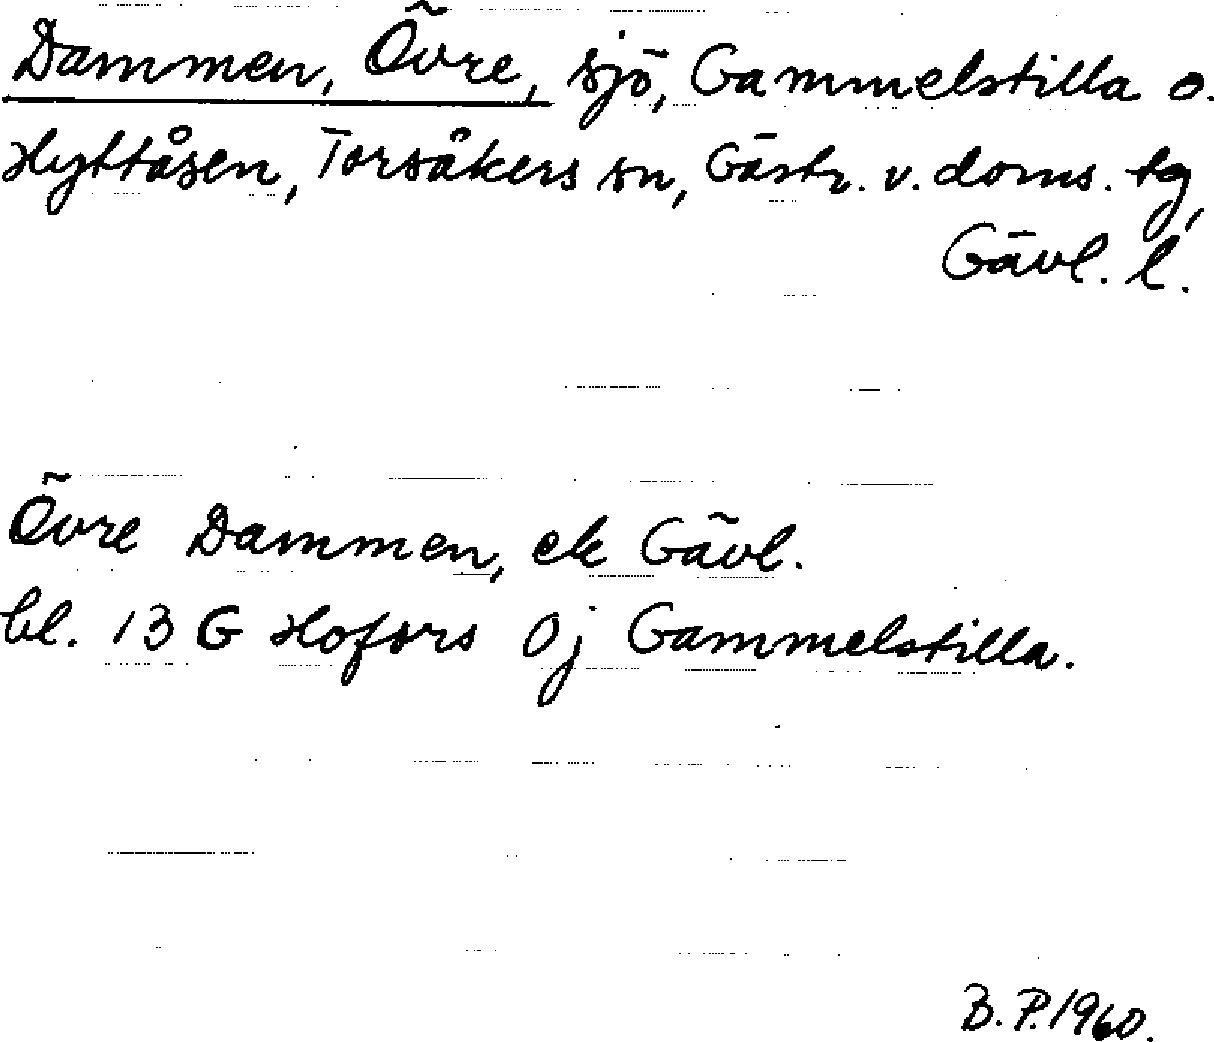 Dammen, Övre, sjö, Gammelstilla o.
Hyttåsen, Torsåkers sn, Gästr. v. doms. tg,
Gävl. l.
Övre Dammen, ek Gävl.
bl. 13 G Hofors 0j Gammelstilla.
B. P. 1960.